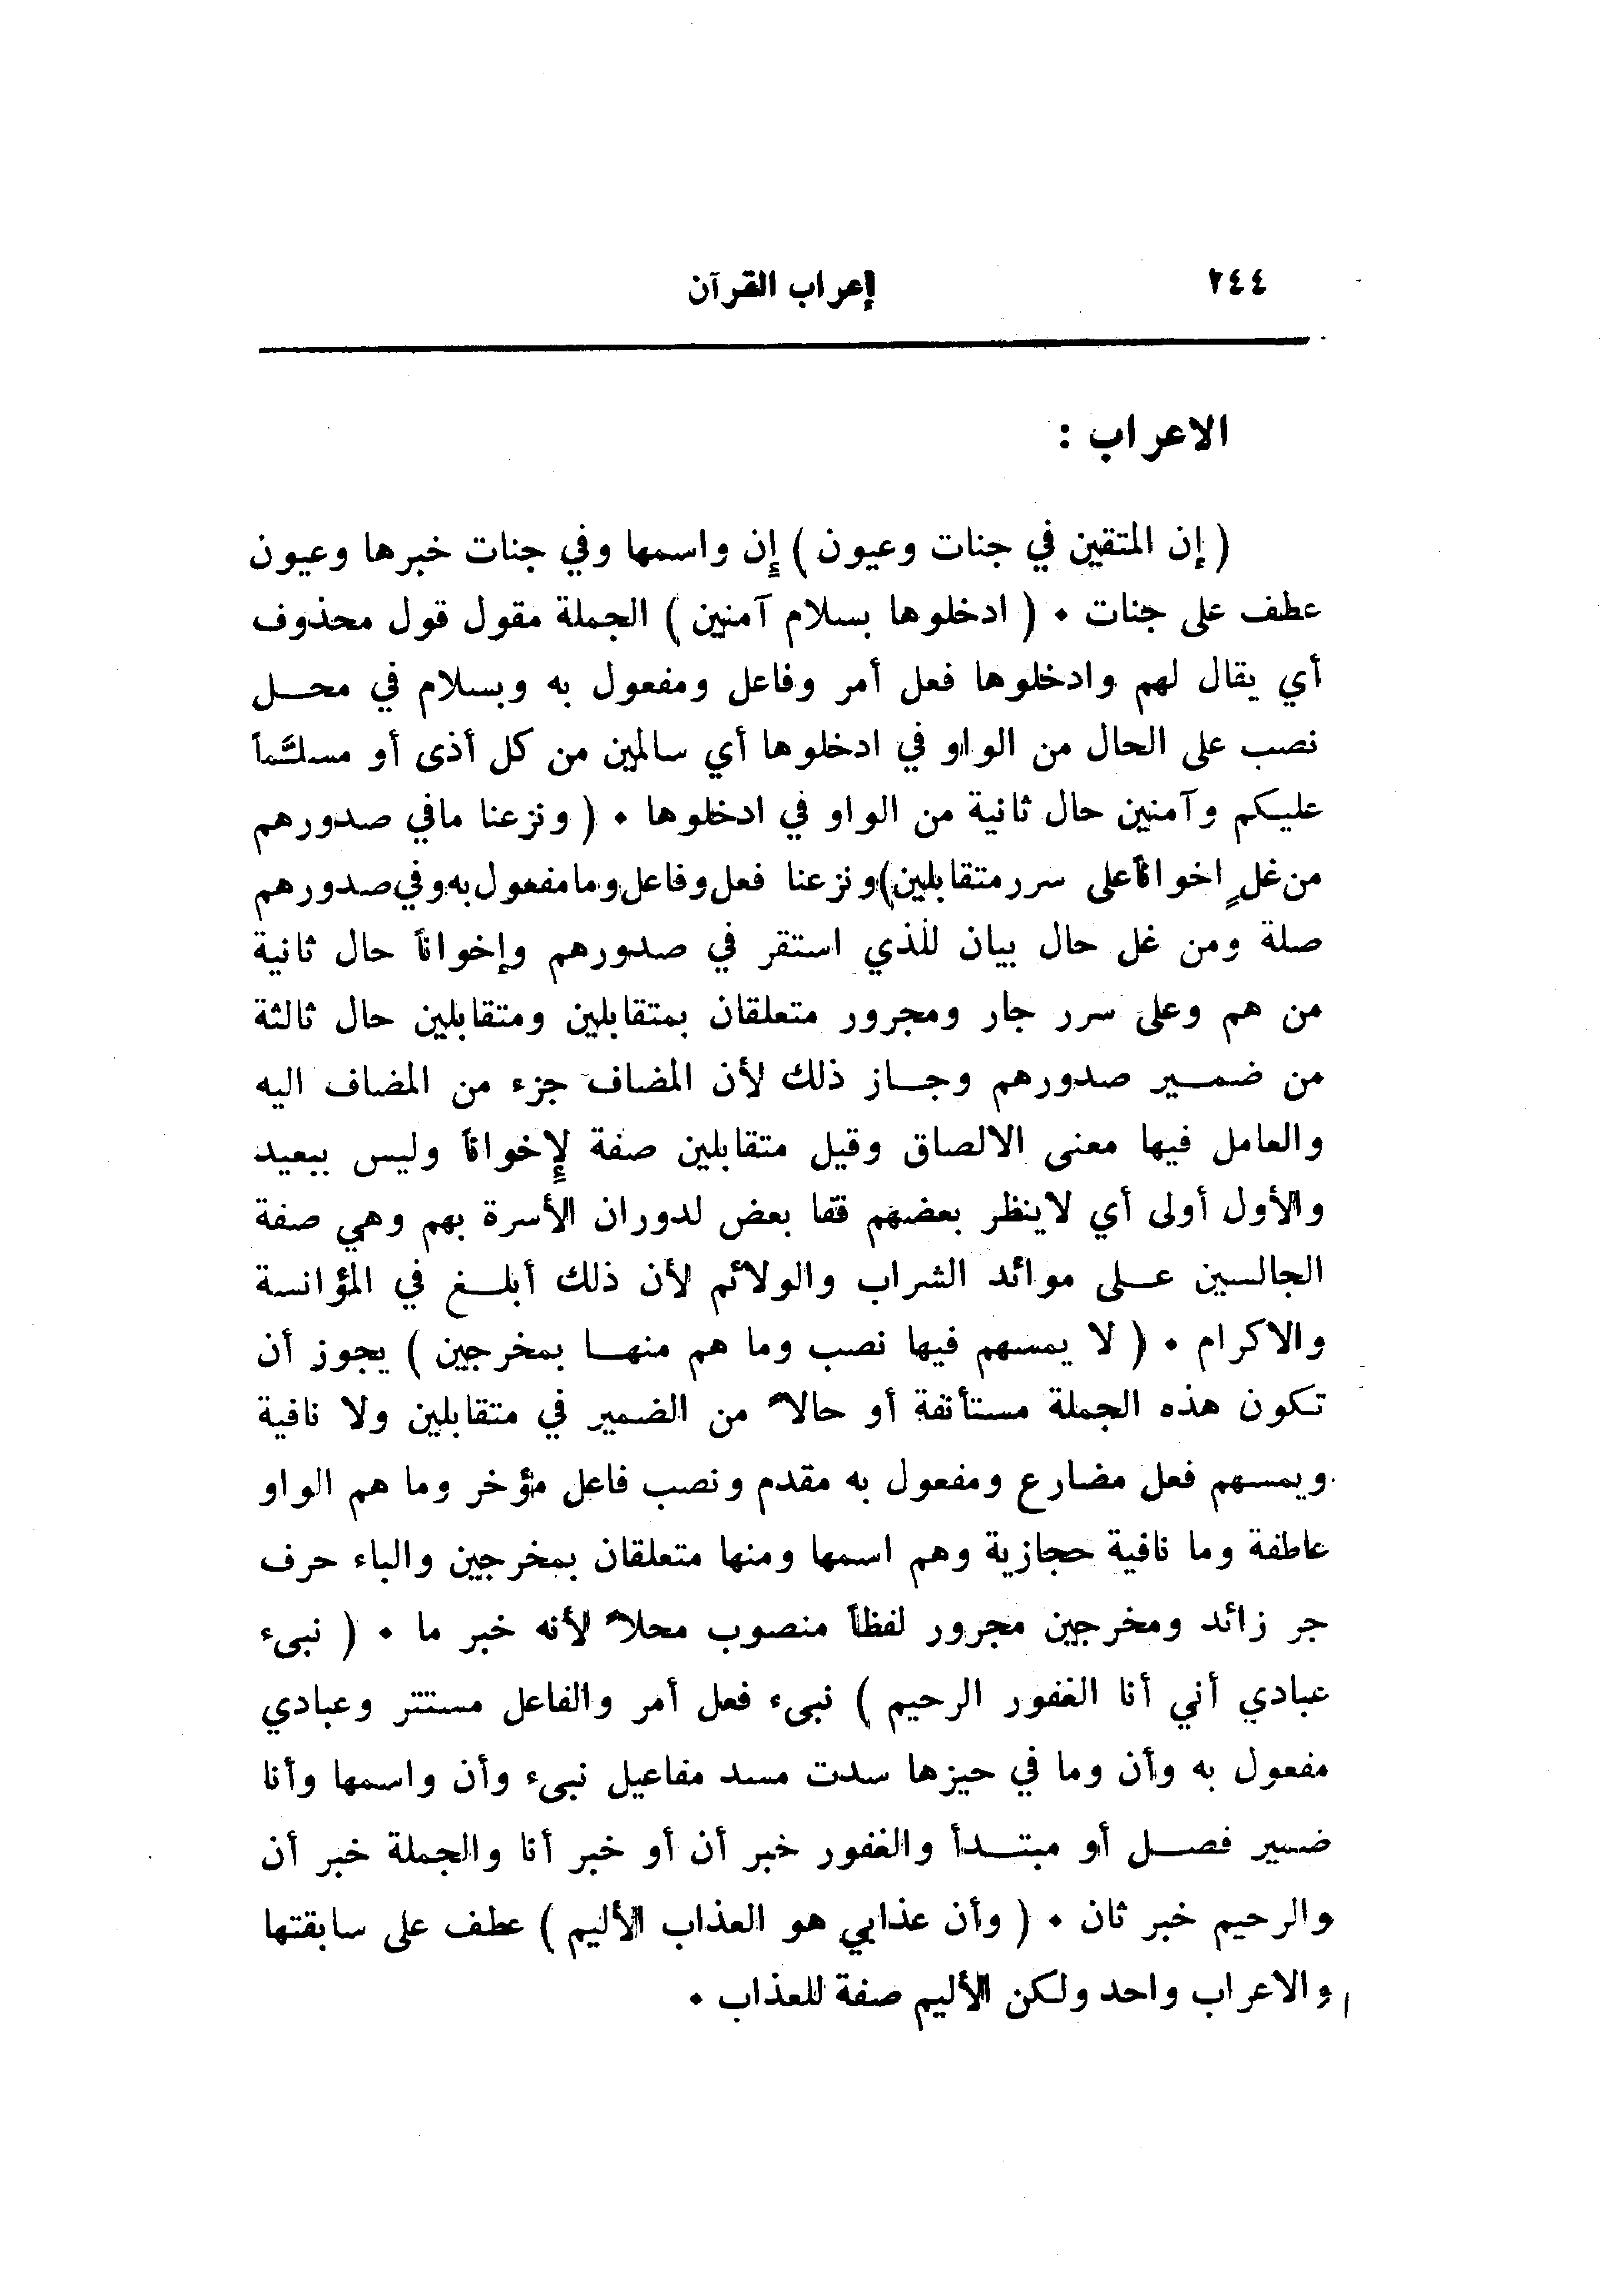 ٢٤٤
إعراب القرآن
الاعراب :
( إن المتقين في جنات وعيون ) إن واسمها وفي جنات خبرها وعيون
عطف على جنات • ( ادخلوها بسلام آمنين ) الجملة مقول قول محذوف
أي يقال لهم وادخلوها فعل أمر وفاعل ومفعول به وبسلام في محل
نصب على الحال من الواو في ادخلوها أي سالمين من كل أذى أو مسلَّماً
عليكم وآمنين حال ثانية من الواو في ادخلوها • ( ونزعنا مافي صدورهم
من غلٍ اخواناً على سرر متقابلين) ونزعنا فعل وفاعل وما مفعول به وفي صدورهم
صلة ومن غل حال بيان للذي استقر في صدورهم وإخواناً حال ثانية
من هم وعلى سرر جار ومجرور متعلقان بمتقابلين ومتقابلين حال ثالثة
من ضمير صدورهم وجاز ذلك لأن المضاف جزء من المضاف اليه
والعامل فيها معنى الالصاق وقيل متقابلين صفة لإخواناً وليس ببعيد
والأول أولى أي لاينظر بعضهم قفا بعض لدوران الأسرة بهم وهي صفة
الجالسين على موائد الشراب والولائم لأن ذلك أبلغ في المؤانسة
والاكرام • ( لا يمسهم فيها نصب وما هم منها بمخرجين ) يجوز أن
تكون هذه الجملة مستأنفة أو حالاً من الضمير في متقابلين ولا نافية
ويمسهم فعل مضارع ومفعول به مقدم ونصب فاعل مؤخر وما هم الواو
عاطفة وما نافية حجازية وهم اسمها ومنها متعلقان بمخرجين والباء حرف
جر زائد ومخرجين مجرور لفظاً منصوب محلاً لأنه خبر ما • ( نبىء
عبادي أني أنا الغفور الرحيم ) نبىء فعل أمر والفاعل مستتر وعبادي
مفعول به وأن وما في حيزها سدت مسد مفاعيل نبىء وأن واسمها وأنا
ضمير فصل أو مبتدأ والغفور خبر أن أو خبر أنا والجملة خبر أن
والرحيم خبر ثان • ( وأن عذابي هو العذاب الأليم ) عطف على سابقتها
والاعراب واحد ولكن الأليم صفة للعذاب •